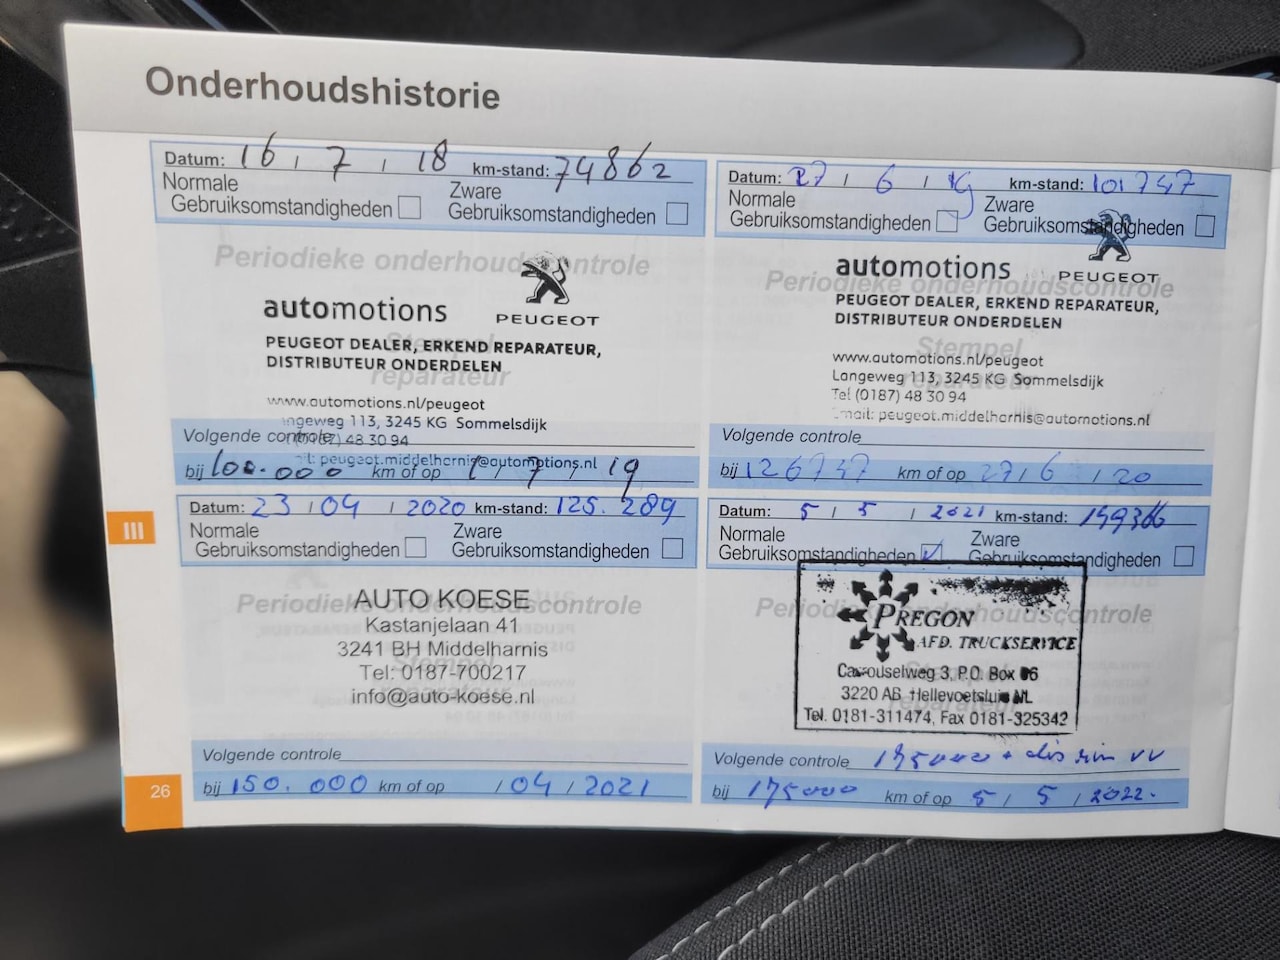 Onderhoudshistorie
Datum: 16 / 7 / 18 km-stand: 74862
Normale Gebruiksomstandigheden
Zware Gebruiksomstandigheden
Periodieke onderhoudscontrole
automotions
PEUGEOT
PEUGEOT DEALER, ERKEND REPARATEUR,
DISTRIBUTEUR ONDERDELEN
Stempel
reparateur
www.automotions.nl/peugeot
ngeweg 113, 3245 KG Sommelsdijk
(0187) 48 30 94
Volgende controle
il: peugeot.middelharnis@automotions.nl
bij 100.000 km of op 1 / 7 / 19
Datum: 27 / 6 / 19 km-stand: 101747
Normale Gebruiksomstandigheden
Zware Gebruiksomstandigheden
automotions
PEUGEOT
Periodieke onderhoudscontrole
PEUGEOT DEALER, ERKEND REPARATEUR,
DISTRIBUTEUR ONDERDELEN
Stempel
reparateur
www.automotions.nl/peugeot
Langeweg 113, 3245 KG Sommelsdijk
Tel (0187) 48 30 94
Email: peugeot.middelharnis@automotions.nl
Volgende controle
bij 126747 km of op 27 / 6 / 20
III
Datum: 23 / 04 / 2020 km-stand: 125.289
Normale Gebruiksomstandigheden
Zware Gebruiksomstandigheden
Periodieke onderhoudscontrole
AUTO KOESE
Kastanjelaan 41
3241 BH Middelharnis
Stempel
Tel: 0187-700217
reparateur
info@auto-koese.nl
Volgende controle
bij 150.000 km of op / 04 / 2021
Datum: 5 / 5 / 2021 km-stand: 149366
Normale Gebruiksomstandigheden
Zware Gebruiksomstandigheden
Periodieke onderhoudscontrole
PREGON
AFD. TRUCKSERVICE
Stempel
reparateur
Carrouselweg 3, P.O. Box 86
3220 AB Hellevoetsluis NL
Tel. 0181-311474, Fax 0181-325342
Volgende controle 175000 + dis riem VV
bij 175000 km of op 5 / 5 / 2022.
26